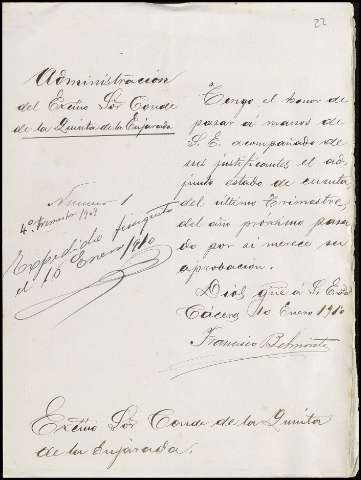 22
Administración
del Excmo Sor Conde
de la Quinta de la Enjarada
Numero 1
4º trimestre 1909
Expedido finiquito
el 10 Enero 1910
Tengo el honor de
pasar á manos de
S. E. acompañado de
sus justificantes el ad-
junto estado de cuenta
del ultimo Trimestre,
del año próximo pasa
do por si merece su
aprobación.
Dios gue á S. E.
Cáceres 10 Enero 1910
Francisco Belmonte
Excmo Sor Conde de la Quinta
de la Enjarada.